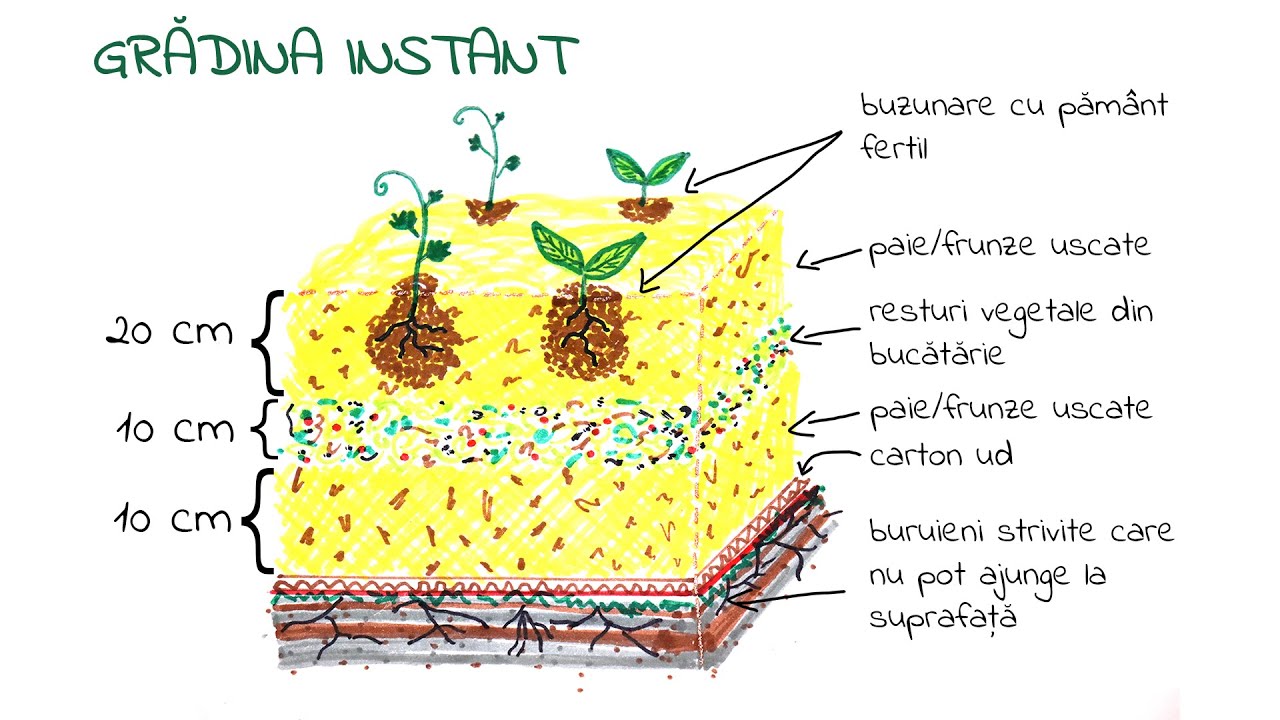 GRĂDINA INSTANT
buzunare cu pământ
fertil
paie/frunze uscate
resturi vegetale din
bucătărie
paie/frunze uscate
carton ud
buruieni strivite care
nu pot ajunge la
suprafață
20 cm
10 cm
10 cm